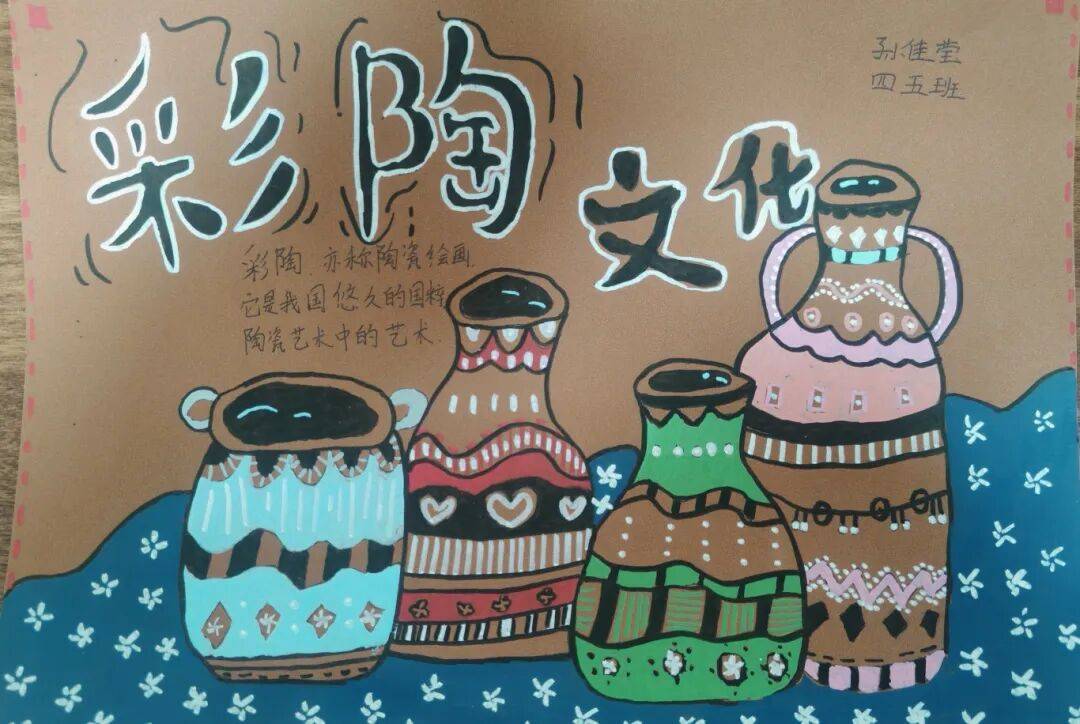 彩陶文化
孙佳莹
四五班
彩陶、亦称陶瓷绘画,
它是我国悠久的国粹
陶瓷艺术中的艺术.